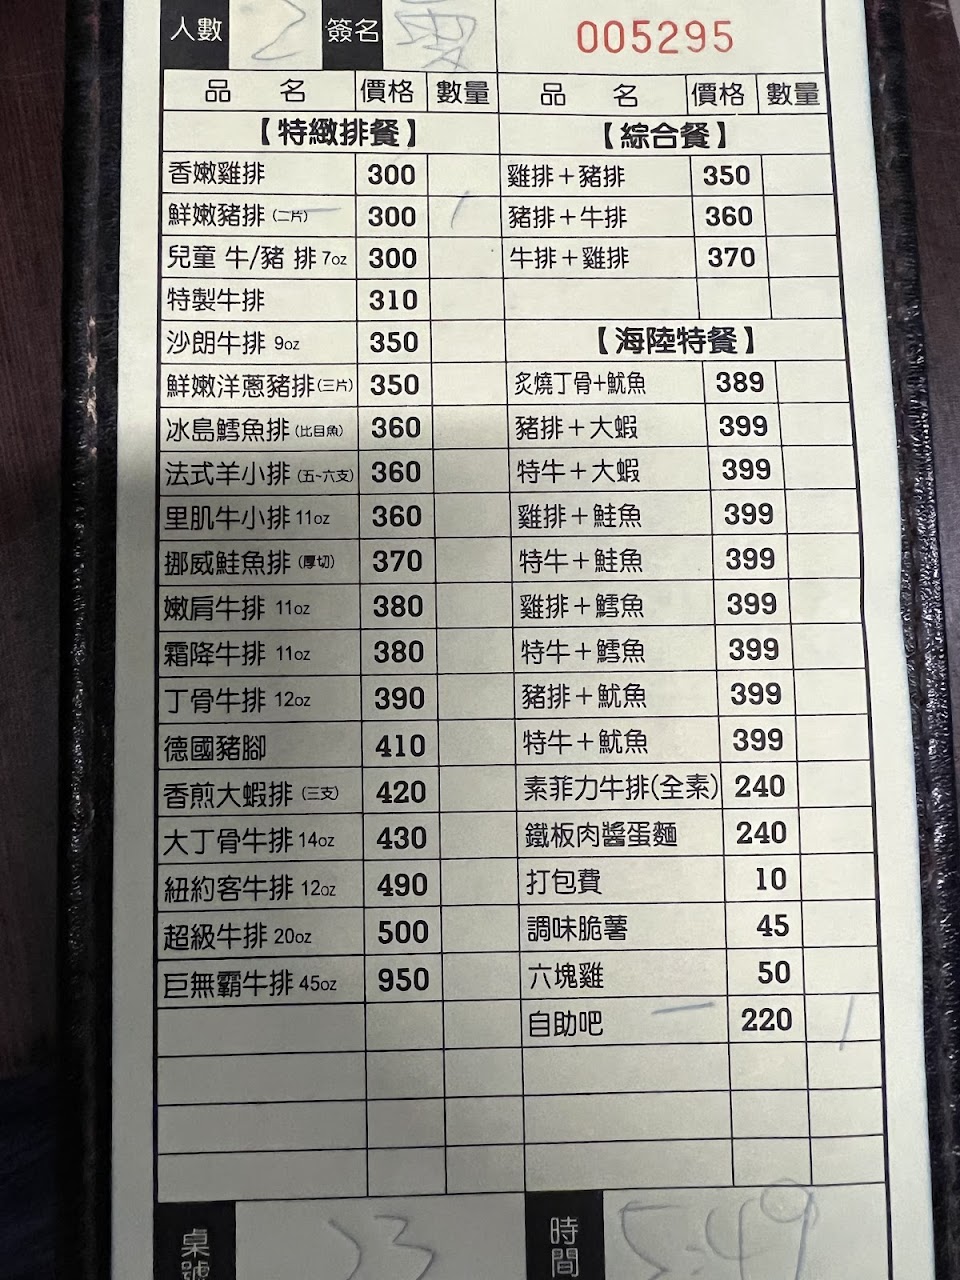 人數 2 簽名 005295
品 名 價格 數量
【特緻排餐】
香嫩雞排 300
鮮嫩豬排(二片) 300 /
兒童 牛/豬 排 7oz 300
特製牛排 310
沙朗牛排 9oz 350
鮮嫩洋蔥豬排(三片) 350
冰島鱈魚排(比目魚) 360
法式羊小排(五~六支) 360
里肌牛小排 11oz 360
挪威鮭魚排(厚切) 370
嫩肩牛排 11oz 380
霜降牛排 11oz 380
丁骨牛排 12oz 390
德國豬腳 410
香煎大蝦排(三支) 420
大丁骨牛排 14oz 430
紐約客牛排 12oz 490
超級牛排 20oz 500
巨無霸牛排 45oz 950
品 名 價格 數量
【綜合餐】
雞排+豬排 350
豬排+牛排 360
牛排+雞排 370
【海陸特餐】
炙燒丁骨+魷魚 389
豬排+大蝦 399
特牛+大蝦 399
雞排+鮭魚 399
特牛+鮭魚 399
雞排+鱈魚 399
特牛+鱈魚 399
豬排+魷魚 399
特牛+魷魚 399
素菲力牛排(全素) 240
鐵板肉醬蛋麵 240
打包費 10
調味脆薯 45
六塊雞 50
自助吧 220 /
桌號 33 時間 5:49